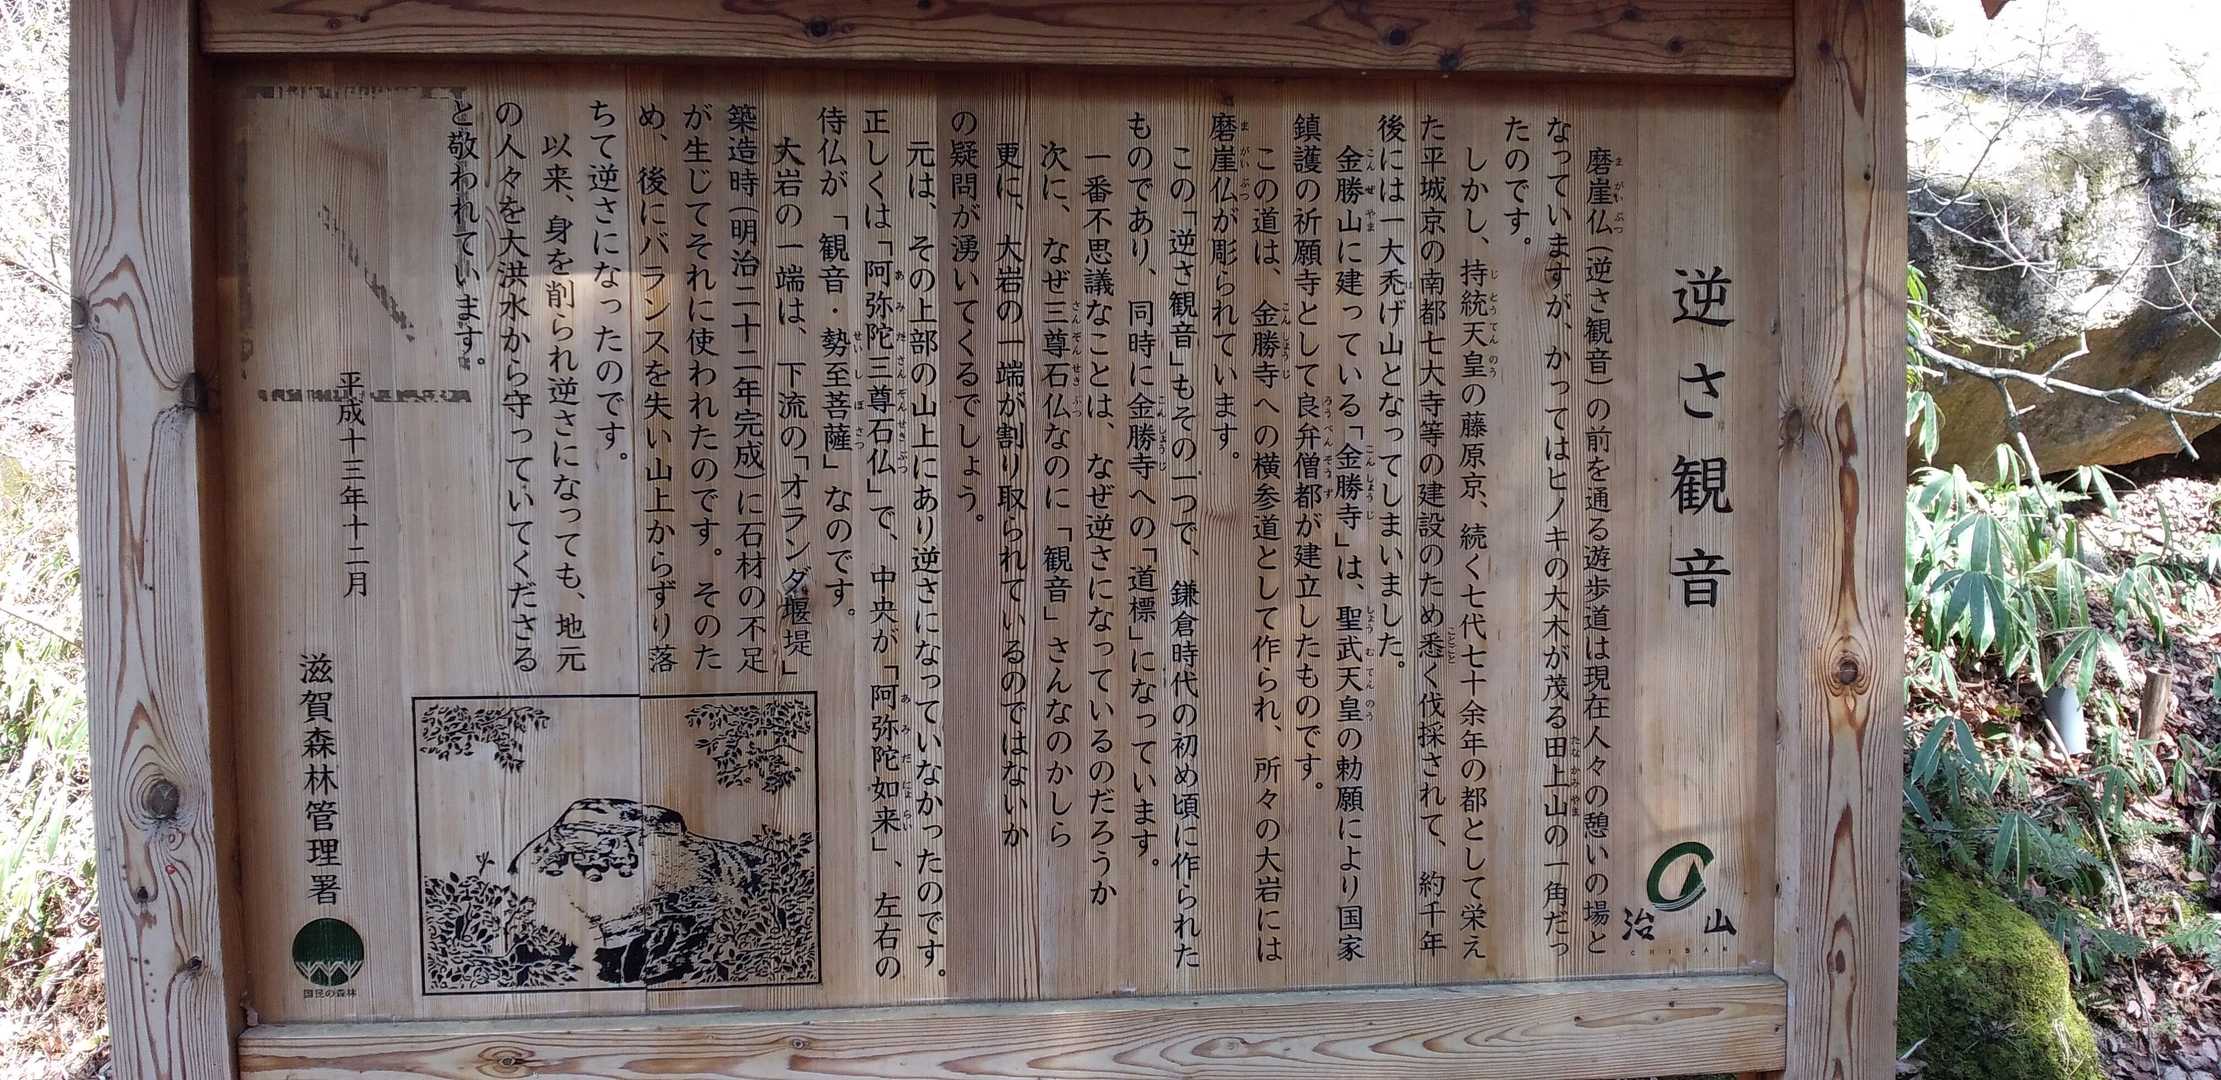 逆さ観音
治山
CHISAN
磨崖仏(逆さ観音)の前を通る遊歩道は現在人々の憩いの場と
なっていますが、かってはヒノキの大木が茂る田上山の一角だっ
たのです。
しかし、持統天皇の藤原京、続く七代七十余年の都として栄え
た平城京の南都七大寺等の建設のため悉く伐採されて、約千年
後には一大禿げ山となってしまいました。
金勝山に建っている「金勝寺」は、聖武天皇の勅願により国家
鎮護の祈願寺として良弁僧都が建立したものです。
この道は、金勝寺への横参道として作られ、所々の大岩には
磨崖仏が彫られています。
この「逆さ観音」もその一つで、鎌倉時代の初め頃に作られた
ものであり、同時に金勝寺への「道標」になっています。
一番不思議なことは、なぜ逆さになっているのだろうか
次に、なぜ三尊石仏なのに「観音」さんなのかしら
更に、大岩の一端が割り取られているのではないか
の疑問が湧いてくるでしょう。
元は、その上部の山上にあり逆さになっていなかったのです。
正しくは「阿弥陀三尊石仏」で、中央が「阿弥陀如来」、左右の
侍仏が「観音・勢至菩薩」なのです。
大岩の一端は、下流の「オランダ堰堤」
築造時(明治二十二年完成)に石材の不足
が生じてそれに使われたのです。そのた
め、後にバランスを失い山上からずり落
ちて逆さになったのです。
以来、身を削られ逆さになっても、地元
の人々を大洪水から守っていてくださる
と敬われています。
平成十三年十二月
滋賀森林管理署
国民の森林